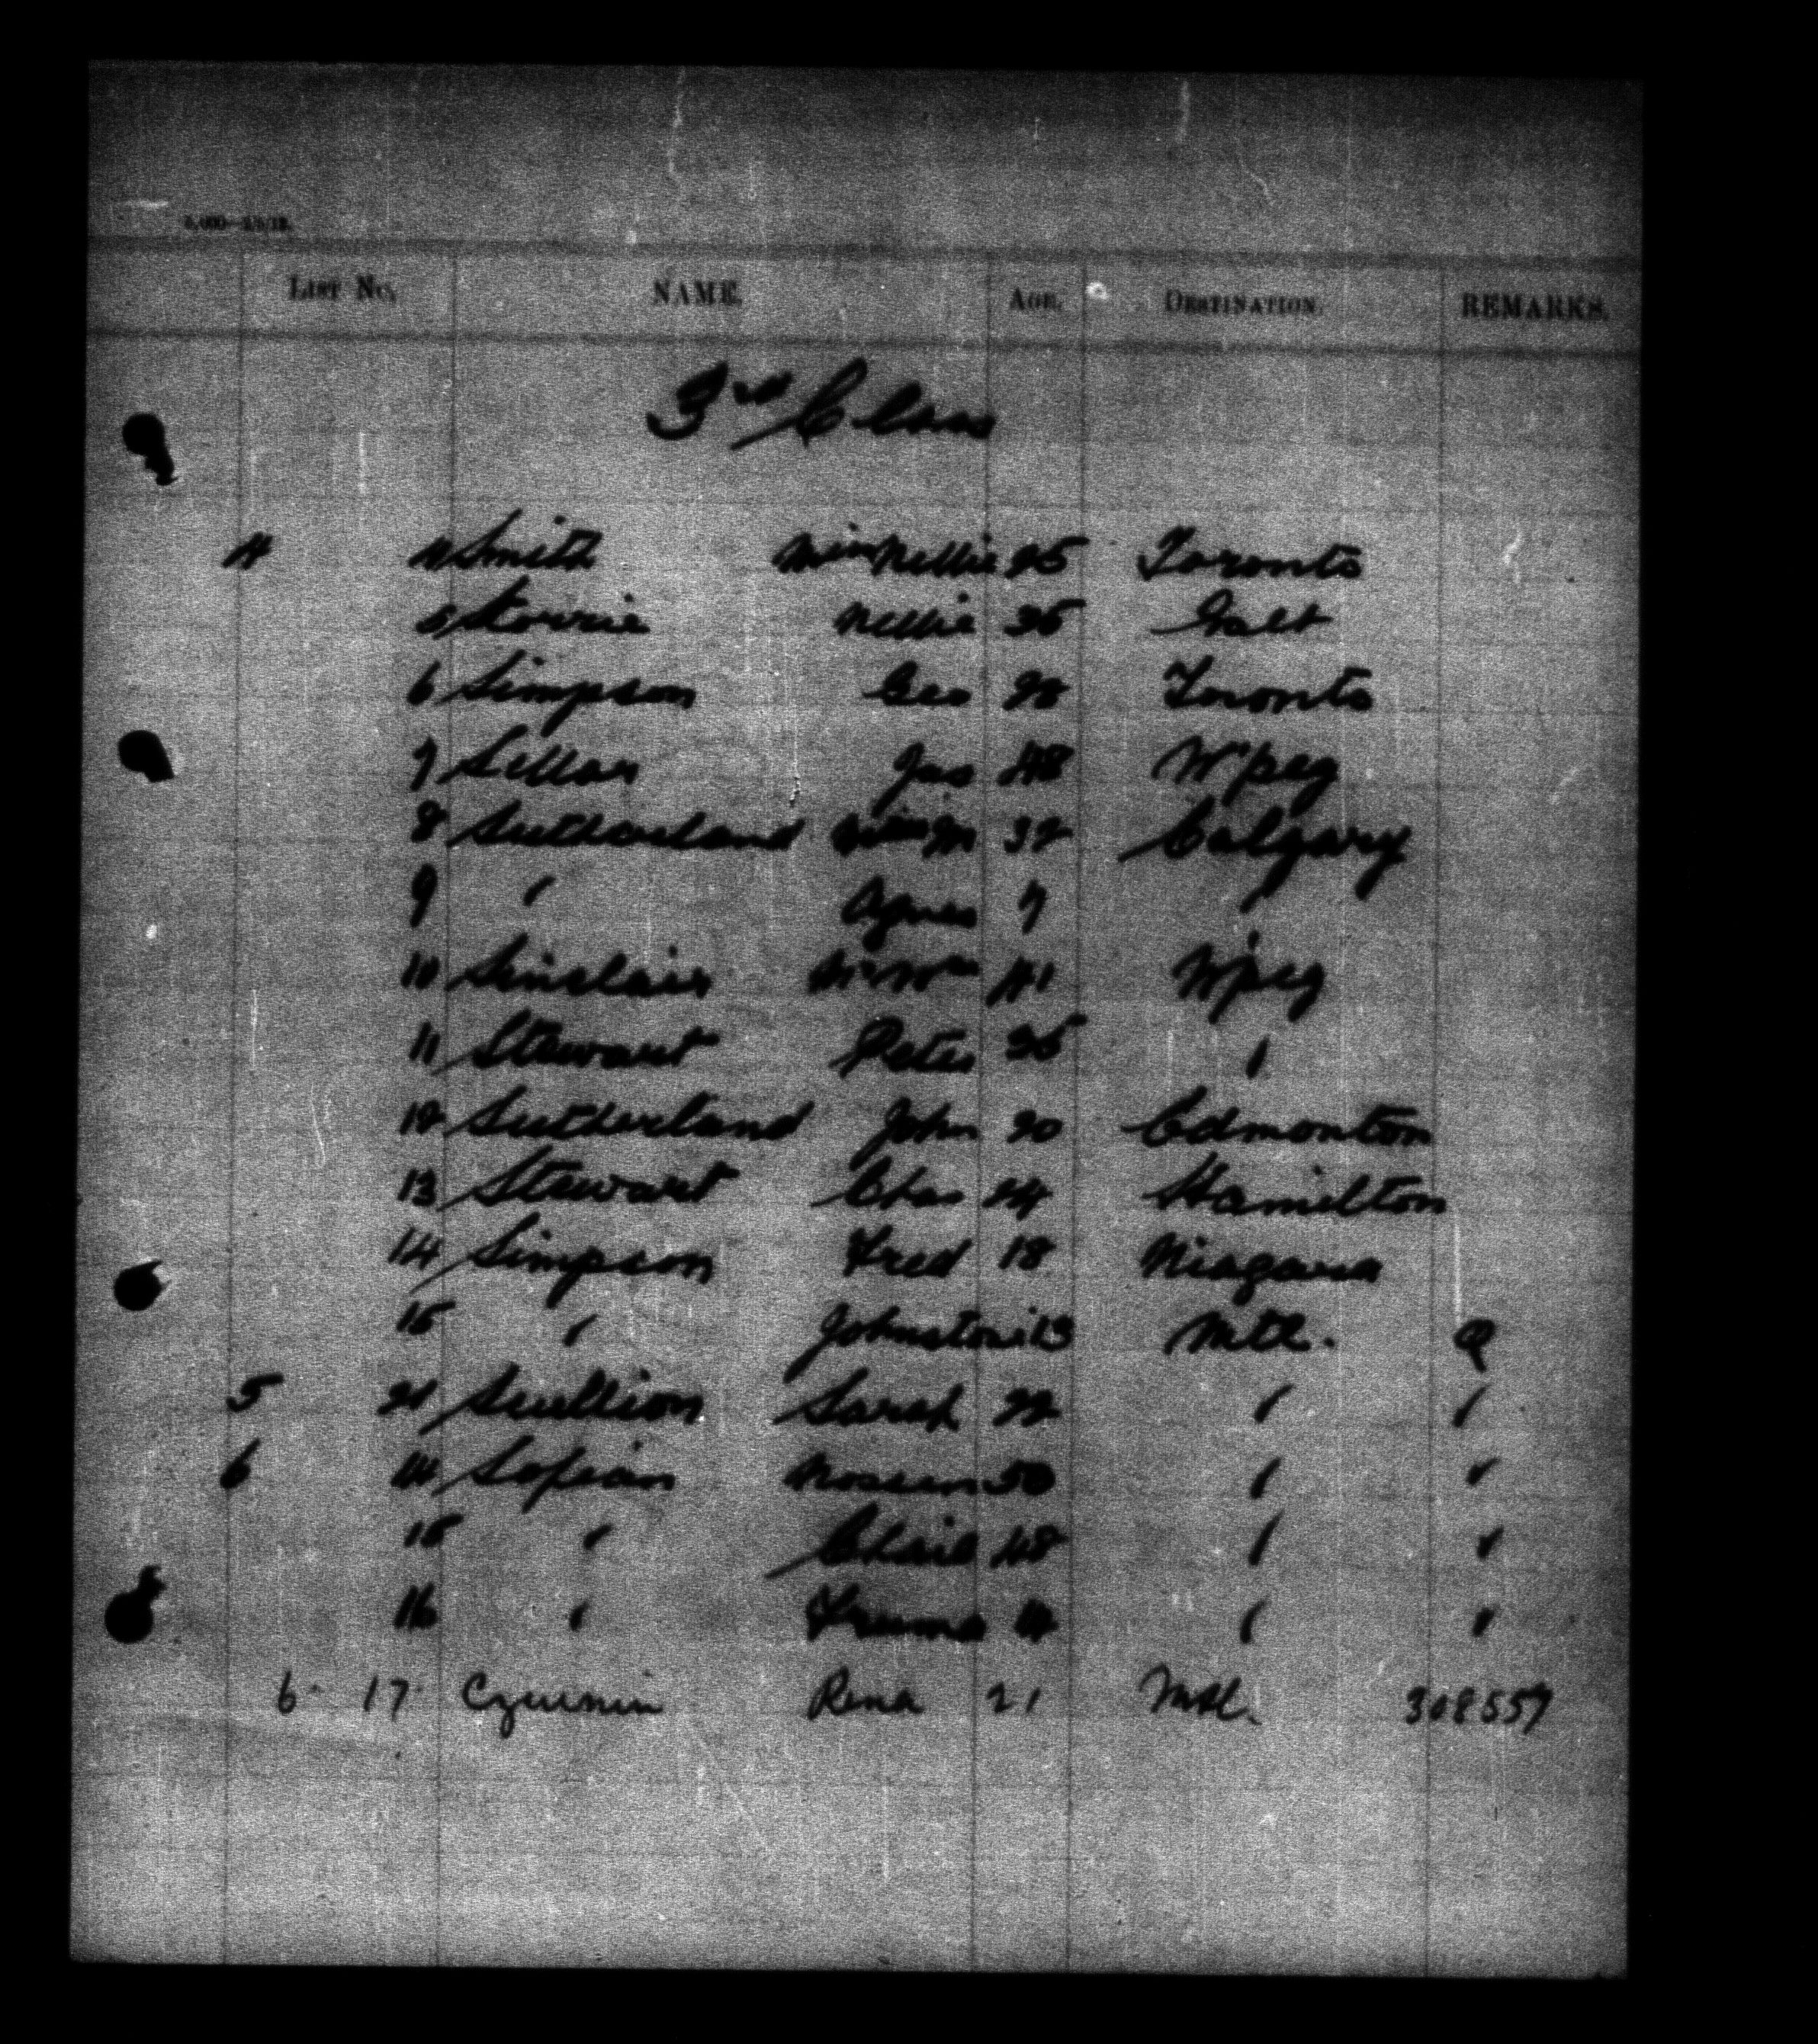 List No. NAME. Age. Destination. REMARKS.
3rd Class
4 4 Smith Miss Nellie 25 Toronto
5 Storrie Nellie 35 Galt
6 Simpson Geo 28 Toronto
7 Sillar Jas 48 W'peg
8 Sutherland M 32 Calgary
9 " Agnes 7 "
10 Sinclair Mr Wm 41 W'peg
11 Stewart Peter 35 "
12 Sutherland John 20 Edmonton
13 Stewart Chas 24 Hamilton
14 Simpson Fred 18 Niagara
15 " Johnstone 13 Mtl. Q
5 21 Scullion Sarah 22 " "
6 14 Sofian 50 " "
15 " 48 " "
16 " Fruma " "
6 17 Rina 21 Mtl. 308557